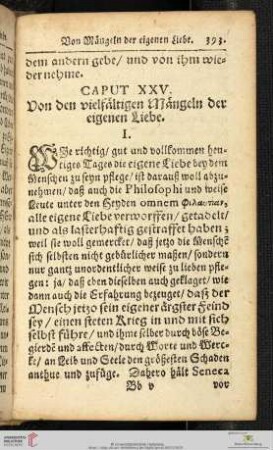 Von Mängeln der eigenen Liebe. 393.
dem andern gebe/ und von ihm wie-
der nehme.
CAPUT XXV.
Von den vielfältigen Mängeln der
eigenen Liebe.
I.
Wie richtig/ gut und vollkommen heu-
tiges Tages die eigene Liebe bey dem
Menschen zu seyn pflege/ ist darauß woll abzu-
nehmen/ daß auch die Philosophi und weise
Leute unter den Heyden omnem
alle eigene Liebe verworffen/ getadelt/
und als lasterhafftig gestraffet haben;
weil sie woll gemercket/ daß jetzo die Menschē
sich selbsten nicht gebürlicher maßen/ sondern
nur gantz unordentlicher weise zu lieben pfle-
gen: ja/ daß eben dieselben auch geklaget/ wie
dann auch die Erfahrung bezeuget/ daß der
Mensch jetzo sein eigener ärgster Feind
sey/ einen steten Krieg in und mit sich
selbst führe/ und ihme selber durch böse Be-
gierdē und affecten/ durch Worte und Werc-
ke/ an Leib und Seele den größesten Schaden
anthue und zufüge. Dahero hält Seneca
Bb v vor